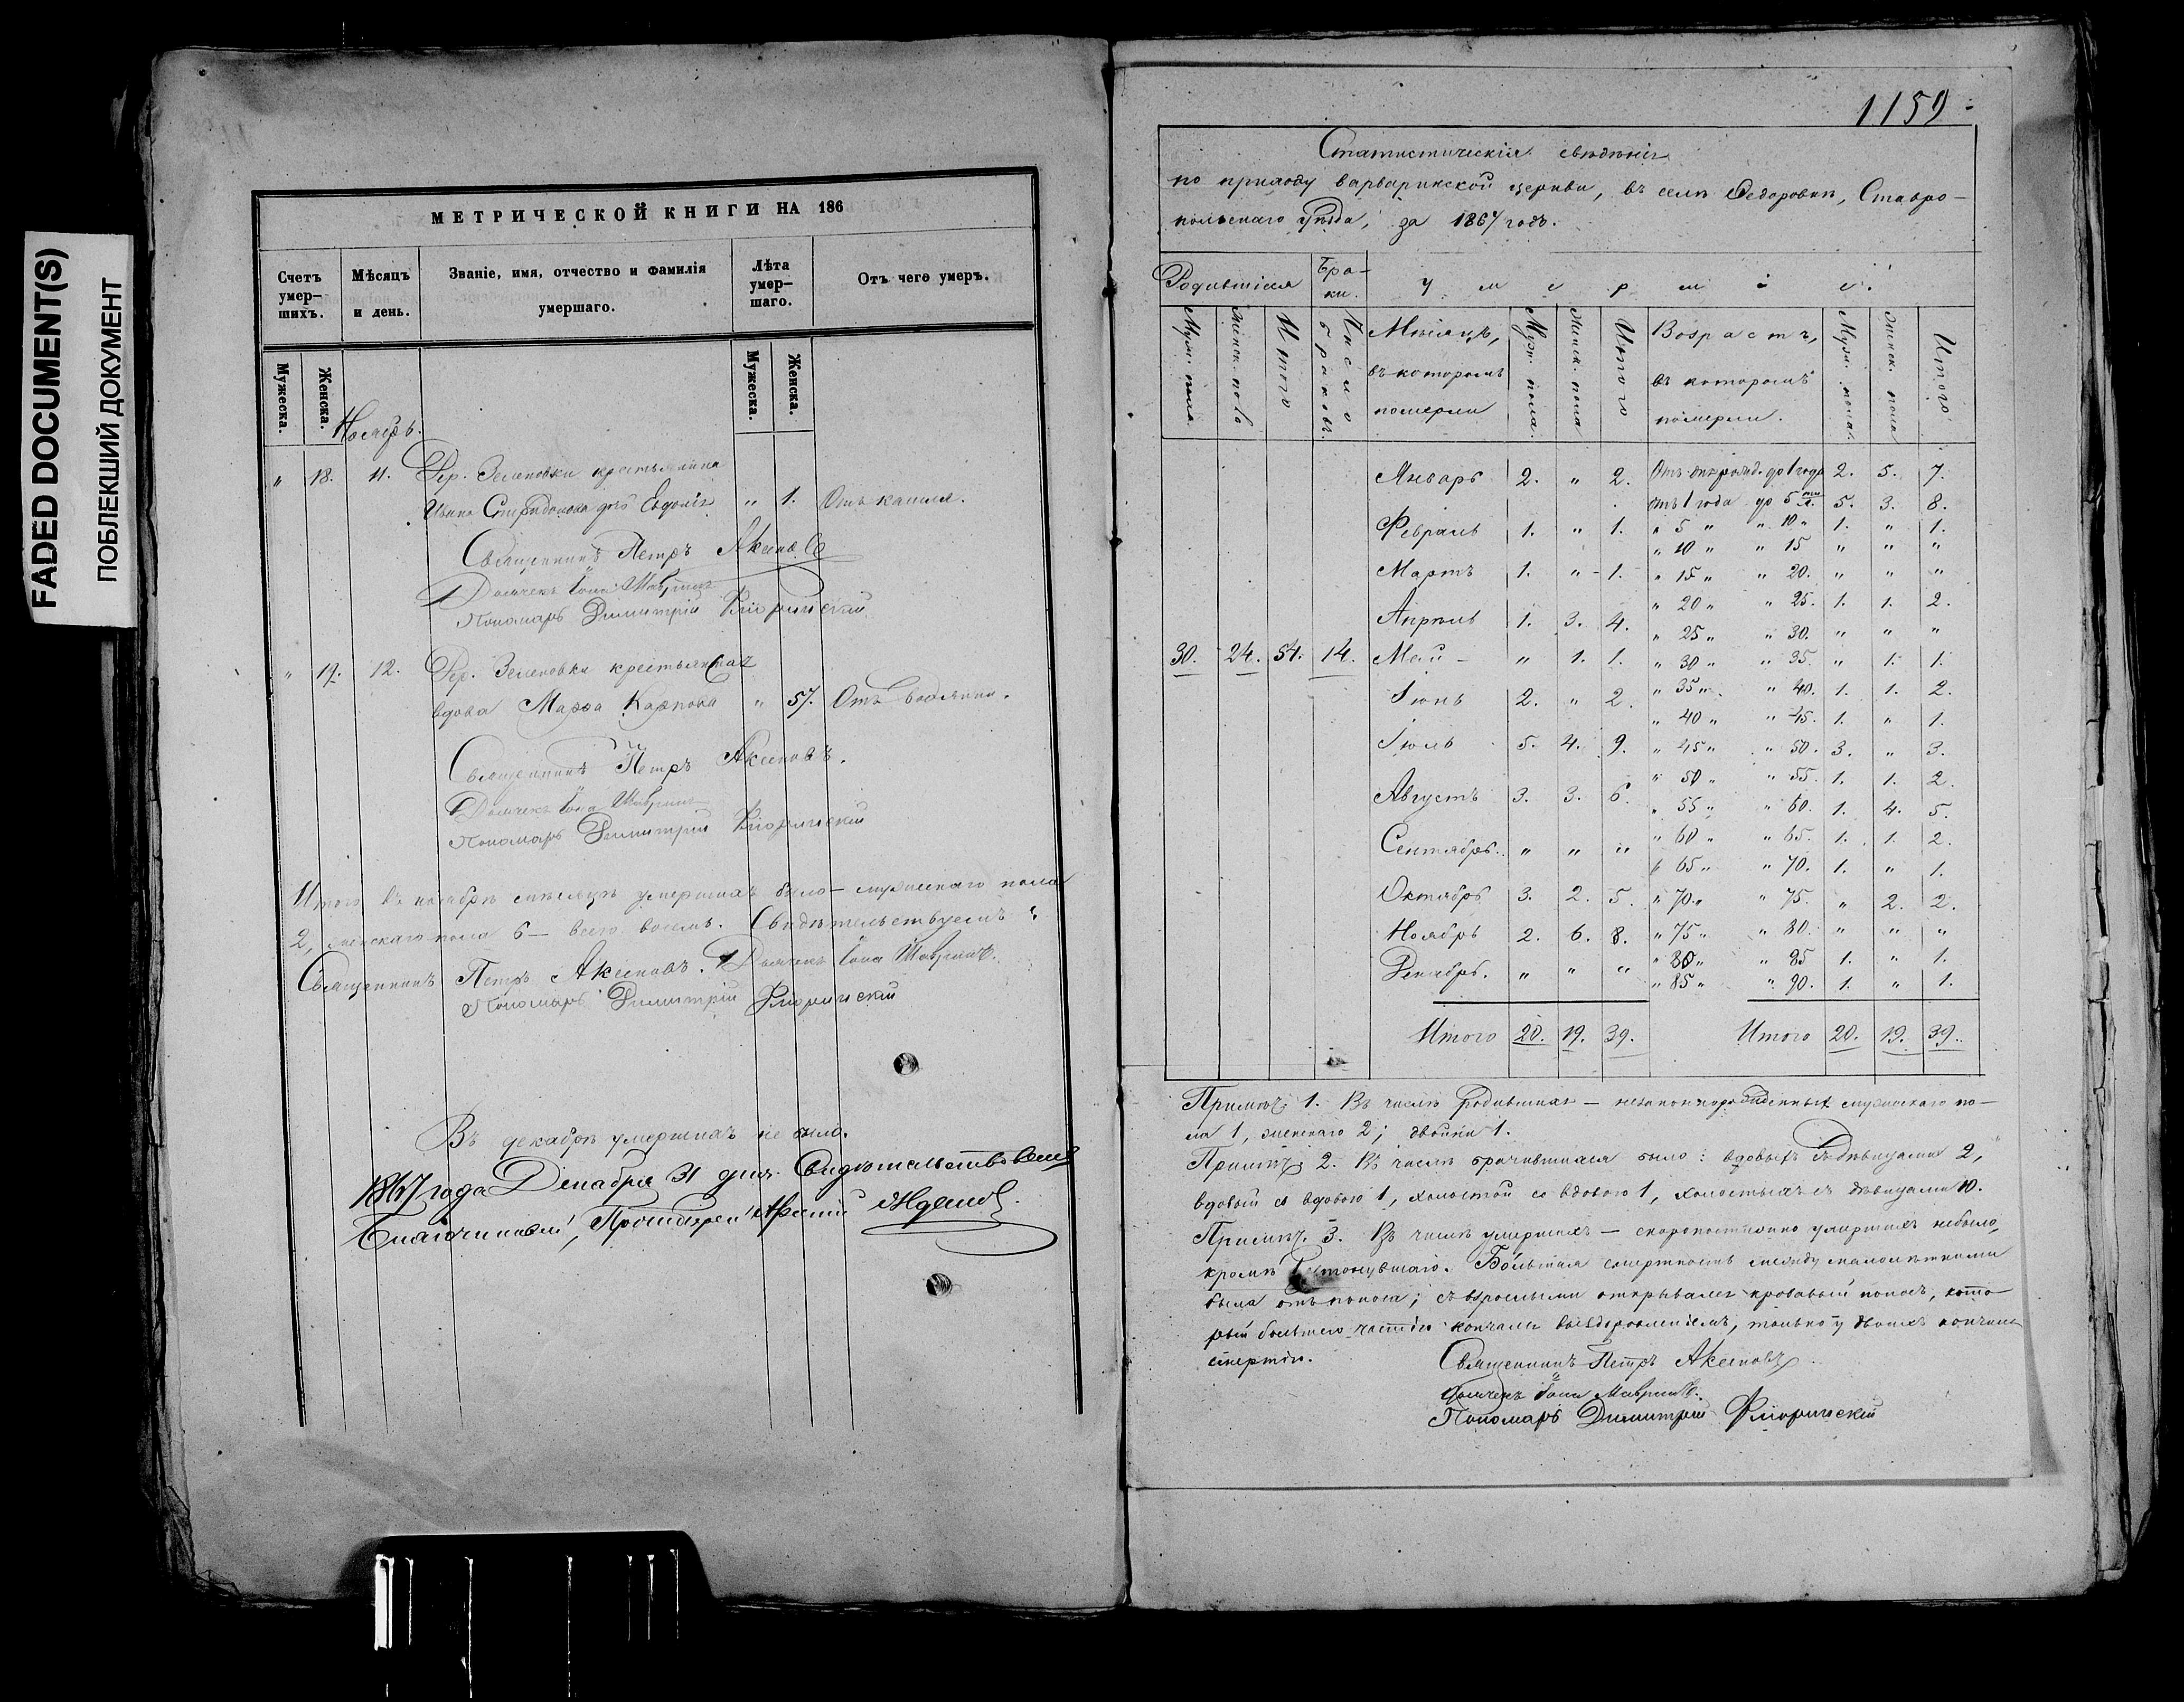 FADED DOCUMENT(S)
ПОБЛЕКШИЙ ДОКУМЕНТ
МЕТРИЧЕСКОЙ КНИГИ НА 186
Счетъ умер-шихъ.
Мѣсяцъ и день.
Званіе, имя, отчество и фамилія умершаго.
Лѣта умер-шаго.
Отъ чего умеръ.
Мужеска.
Женска.
Мужеска.
Женска.
Ноябрь.
" 18. 11. Дер. Зеленовки крестьянина
Ивана Спиридонова дочь Евдокія " 1. Отъ кашля.
Священникъ Петръ Акспловъ
Дьячекъ Іона
Пономарь Димитрій
" 19. 12. Дер. Зеленовки крестьянская
вдова Марѳа Карпова " 57. Отъ водянки.
Священникъ Петръ
Дьячекъ Іона
Пономарь Димитрій
Итого въ ноябрѣ мѣсяцѣ умершихъ было – мужескаго пола
2, женскаго пола 6 – всего восемь. Свидѣтельствуемъ:
Священникъ Петръ Дьячекъ Іона
Пономарь Димитрій
Въ декабрѣ умершихъ не было.
1867 года Декабря 31 дня. Свидѣтельствовалъ
Благочинный, Протоіерей
1159
Статистическія свѣдѣнія
по приходу Варваринской церкви, въ селѣ Ѳедоровкѣ, Ставро-
польскаго уѣзда, за 1867 годъ.
Родившіеся
Бра-ки.
Умершіе.
Муж. пола.
Женск. пола
Итого
Число браковъ.
Мѣсяцъ, въ которомъ померли
Муж. пола.
Женск. пола
Итого
Возрастъ, въ которомъ померли.
Муж. пола.
Женск. пола
Итого
Январь 2. " 2. Отъ рожд. до 1 года 2. 5. 7.
отъ 1 года до 5 ти л. 5. 3. 8.
Февраль 1. " 1. " 5 " " 10 " 1. " 1.
" 10 " " 15 " " "
Мартъ 1. " 1. " 15 " " 20. " " "
" 20 " " 25. 1. 1. 2.
Апрѣль 1. 3. 4. " 25 " " 30. " " "
30. 24. 54. 14. Май – " 1. 1. " 30 " " 35. " 1. 1.
Іюнь 2. " 2. " 35 " " 40. 1. 1. 2.
" 40 " " 45. 1. " 1.
Іюль 5. 4. 9. " 45 " " 50. 3. " 3.
" 50 " " 55. 1. 1. 2.
Августъ 3. 3. 6. " 55 " " 60. 1. 4. 5.
" 60 " " 65. 1. 1. 2.
Сентябрь. " " " " 65 " " 70. 1. " 1.
Октябрь 3. 2. 5. " 70 " " 75. " 2. 2.
Ноябрь 2. 6. 8. " 75 " " 80. " " "
Декабрь. " " " " 80 " " 85 1. " 1.
" 85 " " 90. 1. " 1.
Итого 20. 19. 39. Итого 20. 19. 39.
Примѣч. 1. Въ числѣ родившихся – незаконнорожденныхъ мужескаго по-
ла 1, женскаго 2; двойни 1.
Примѣч. 2. Въ числѣ брачившихся было: вдовыхъ съ дѣвицами 2,
вдовый со вдовою 1, холостой со вдовою 1, холостыхъ съ дѣвицами 10.
Примѣч. 3. Въ числѣ умершихъ – скоропостижно умершихъ небыло,
кромѣ утонувшаго. Большая смертность между малолѣтними
была отъ поноса; съ взрослыми открывался кровавый поносъ, кото-
рый большею частію кончался выздоровленіемъ, только у двоихъ кончился
смертію.
Священникъ Петръ
Дьячекъ Іона
Пономарь Димитрій